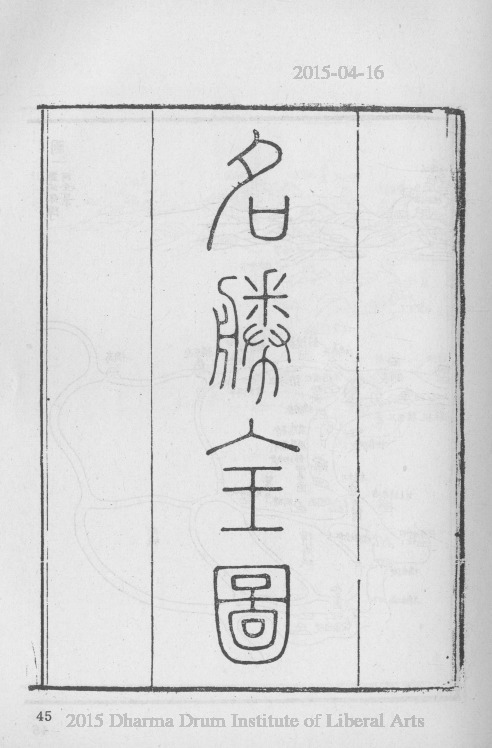 2015-04-16
名勝全圖
45
2015 Dharma Drum Institute of Liberal Arts